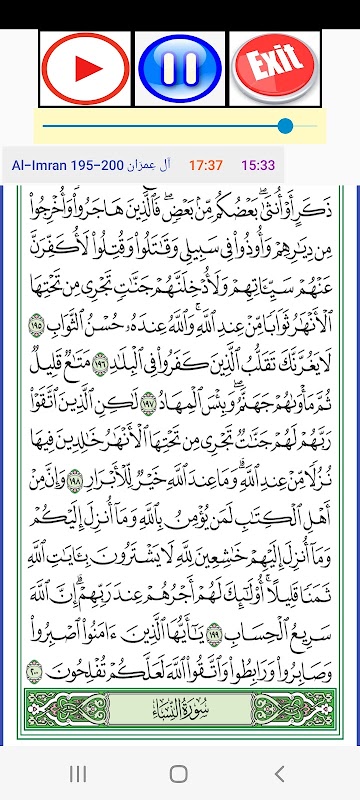 Exit
Al-Imran 195-200 آل عِمرَان 17:37 15:33
ذَكَرٍ أَوْ أُنثَىٰۖ بَعْضُكُم مِّنۢ بَعْضٖۖ فَٱلَّذِينَ هَاجَرُواْ وَأُخْرِجُواْ
مِن دِيَٰرِهِمْ وَأُوذُواْ فِي سَبِيلِي وَقَٰتَلُواْ وَقُتِلُواْ لَأُكَفِّرَنَّ
عَنْهُمْ سَيِّـَٔاتِهِمْ وَلَأُدْخِلَنَّهُمْ جَنَّٰتٖ تَجْرِي مِن تَحْتِهَا
ٱلْأَنْهَٰرُ ثَوَابٗا مِّنْ عِندِ ٱللَّهِۚ وَٱللَّهُ عِندَهُۥ حُسْنُ ٱلثَّوَابِ ١٩٥
لَا يَغُرَّنَّكَ تَقَلُّبُ ٱلَّذِينَ كَفَرُواْ فِي ٱلْبِلَٰدِ ١٩٦ مَتَٰعٞ قَلِيلٞ
ثُمَّ مَأْوَىٰهُمْ جَهَنَّمُۖ وَبِئْسَ ٱلْمِهَادُ ١٩٧ لَٰكِنِ ٱلَّذِينَ ٱتَّقَوْاْ
رَبَّهُمْ لَهُمْ جَنَّٰتٞ تَجْرِي مِن تَحْتِهَا ٱلْأَنْهَٰرُ خَٰلِدِينَ فِيهَا
نُزُلٗا مِّنْ عِندِ ٱللَّهِۗ وَمَا عِندَ ٱللَّهِ خَيْرٞ لِّلْأَبْرَارِ ١٩٨ وَإِنَّ مِنْ
أَهْلِ ٱلْكِتَٰبِ لَمَن يُؤْمِنُ بِٱللَّهِ وَمَآ أُنزِلَ إِلَيْكُمْ
وَمَآ أُنزِلَ إِلَيْهِمْ خَٰشِعِينَ لِلَّهِ لَا يَشْتَرُونَ بِـَٔايَٰتِ ٱللَّهِ
ثَمَنٗا قَلِيلًاۚ أُوْلَٰٓئِكَ لَهُمْ أَجْرُهُمْ عِندَ رَبِّهِمْۗ إِنَّ ٱللَّهَ
سَرِيعُ ٱلْحِسَابِ ١٩٩ يَٰٓأَيُّهَا ٱلَّذِينَ ءَامَنُواْ ٱصْبِرُواْ
وَصَابِرُواْ وَرَابِطُواْ وَٱتَّقُواْ ٱللَّهَ لَعَلَّكُمْ تُفْلِحُونَ ٢٠٠
سُورَةُ النِّسَاءِ